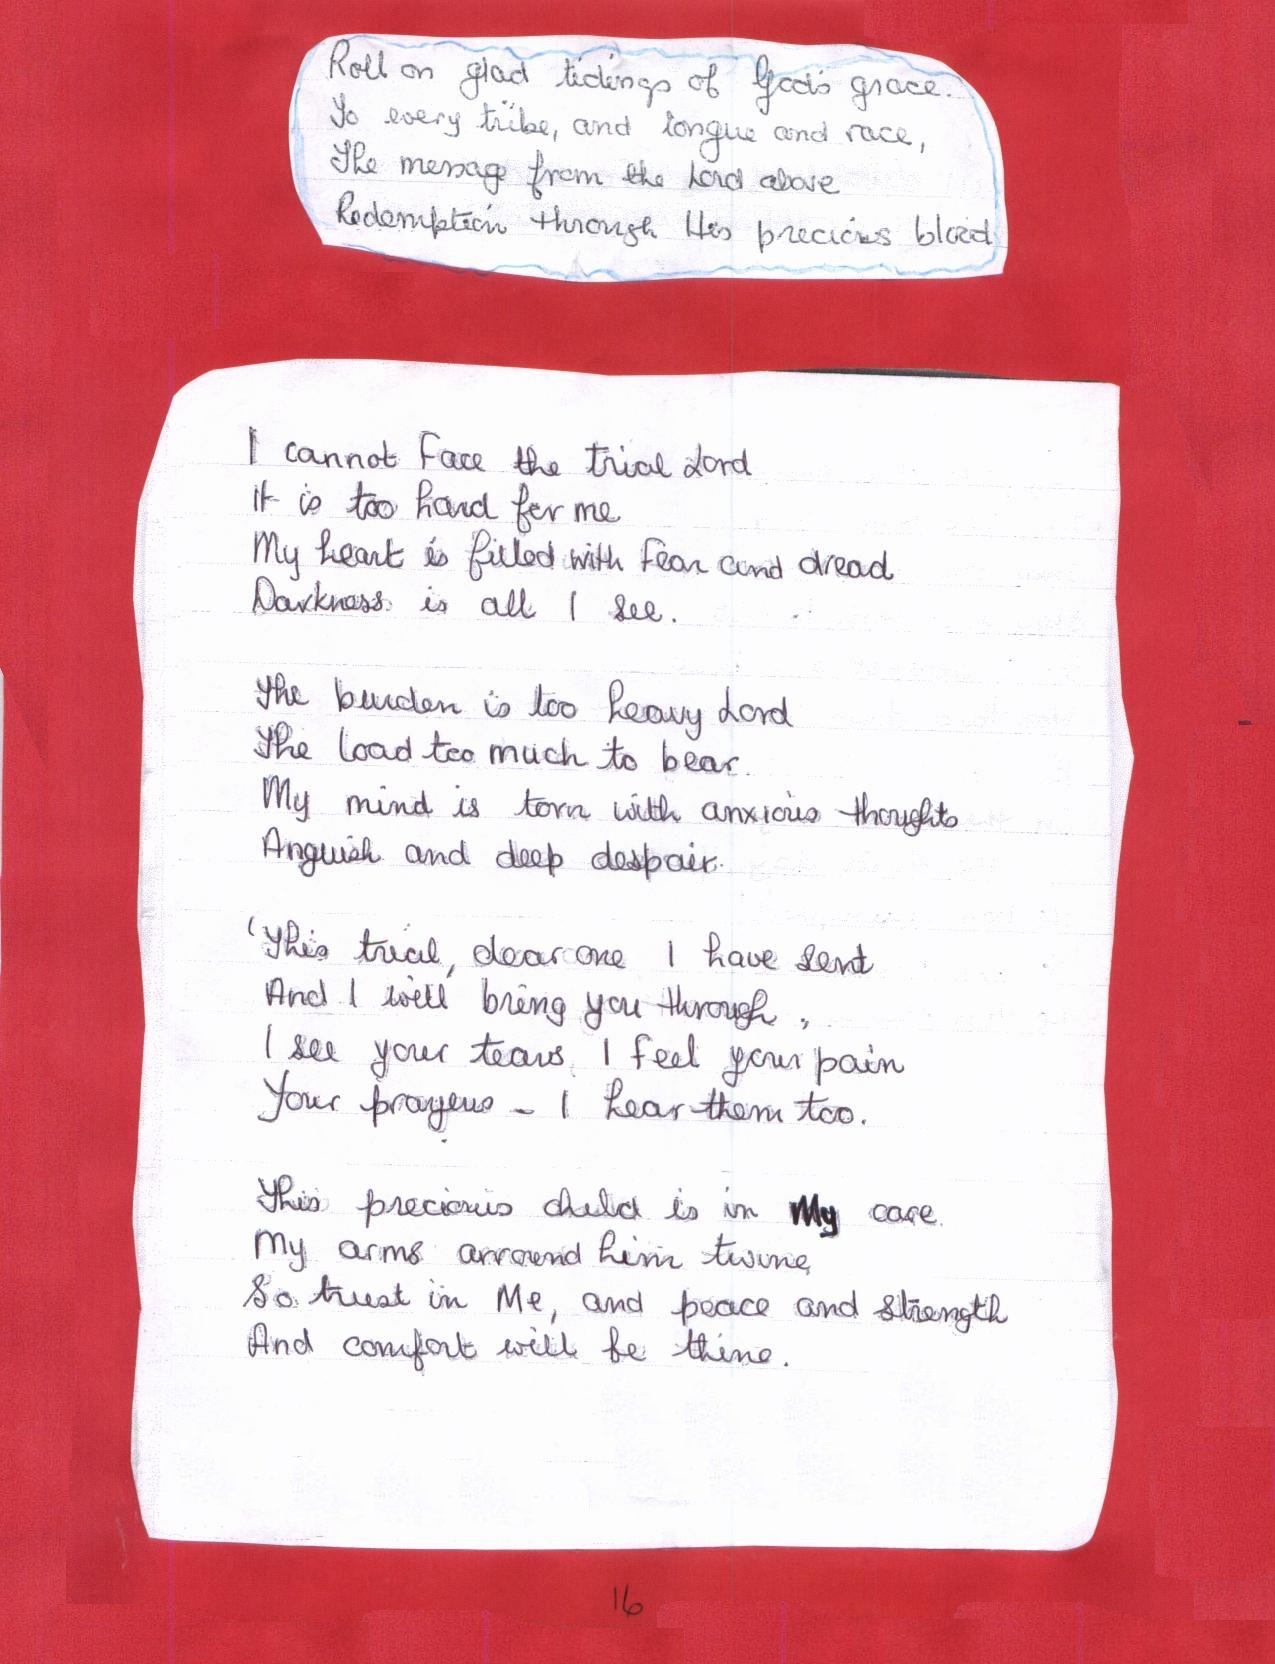 Roll on glad tidings of God's grace.
To every tribe, and tongue and race,
The message from the Lord above
Redemption through His precious blood
I cannot Face the trial Lord
It is too hard for me
My heart is filled with Fear and dread
Darkness is all I see.
The burden is too heavy Lord
The load too much to bear.
My mind is torn with anxious thoughts
Anguish and deep despair.
'This trial, dear one I have sent
And I will bring you through,
I see your tears. I feel your pain
Your prayers - I hear them too.
This precious child is in My care.
My arms arround him twine,
So trust in Me, and peace and strength
And comfort will be thine.
16